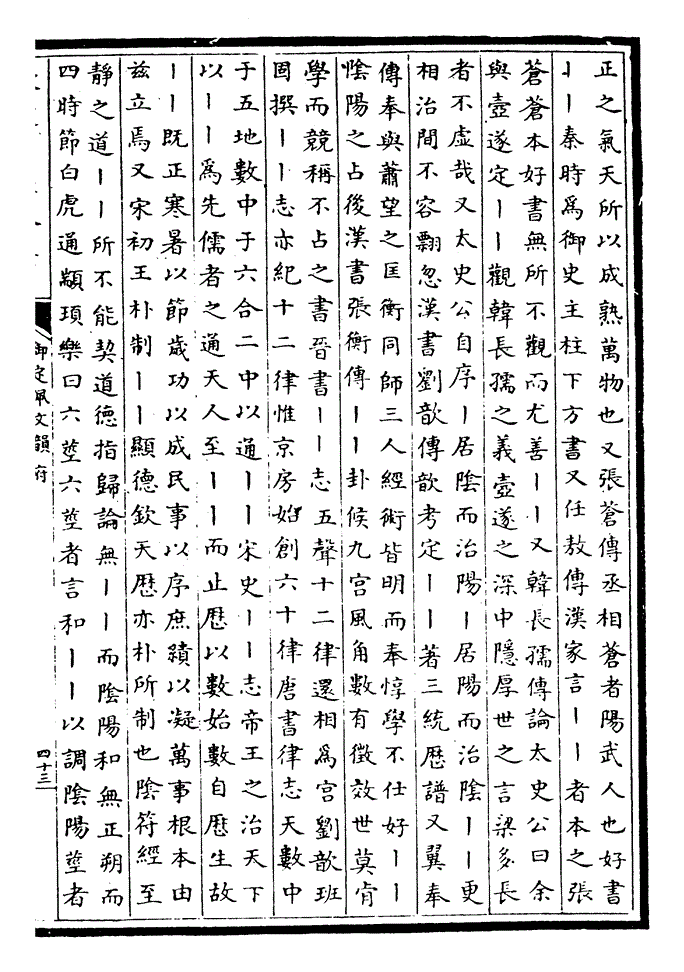 正之氣天所以成熟萬物也又張蒼傳丞相蒼者陽武人也好書
丨丨秦時爲御史主柱下方書又任敖傳漢家言丨丨者本之張
蒼蒼本好書無所不觀而尤善丨丨又韓長孺傳論太史公曰余
與壺遂定丨丨觀韓長孺之義壺遂之深中隱厚世之言梁多長
者不虛哉又太史公自序丨居陰而治陽丨居陽而治陰丨丨更
相治間不容翲忽漢書劉歆傳歆考定丨丨著三統歷譜又翼奉
傳奉與蕭望之匡衡同師三人經術皆明而奉惇學不仕好丨丨
陰陽之占後漢書張衡傳丨丨卦候九宮風角數有徵效世莫肯
學而競稱不占之書晉書丨丨志五聲十二律還相爲宮劉歆班
固撰丨丨志亦紀十二律惟京房始創六十律唐書律志天數中
于五地數中于六合二中以通丨丨宋史丨丨志帝王之治天下
以丨丨爲先儒者之通天人至丨丨而止歷以數始數自歷生故
丨丨既正寒暑以節歲功以成民事以序庶績以凝萬事根本由
茲立焉又宋初王朴制丨丨顯德欽天歷亦朴所制也陰符經至
靜之道丨丨所不能契道德指歸論無丨丨而陰陽和無正朔而
四時節白虎通顓頊樂曰六莖六莖者言和丨丨以調陰陽莖者
御定佩文韻府
四十三